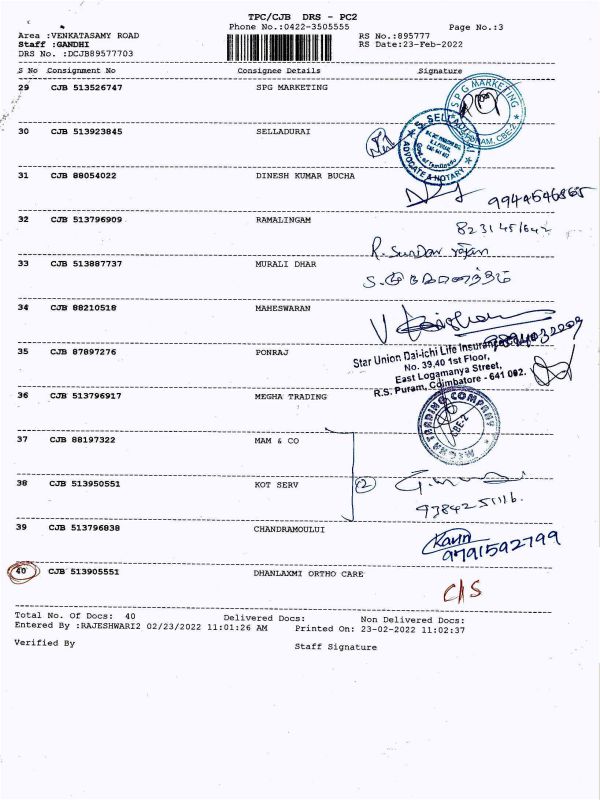 TPC/CJB DRS - PC2
Phone No.:0422-3505555 Page No.:3
Area :VENKATASAMY ROAD RS No.:895777
Staff :GANDHI RS Date:23-Feb-2022
DRS No. :DCJB89577703
S No Consignment No Consignee Details Signature
29 CJB 513526747 SPG MARKETING
SPG MARKETING
30 CJB 513923845 SELLADURAI
S. SELLADURAI
ADVOCATE & NOTARY
31 CJB 88054022 DINESH KUMAR BUCHA
9944546865
32 CJB 513796909 RAMALINGAM
R. Sundar rajan
33 CJB 513887737 MURALI DHAR
34 CJB 88210518 MAHESWARAN
35 CJB 87897276 PONRAJ
Star Union Dai-ichi Life Insurance
No. 39,40 1st Floor,
East Logamanya Street,
R.S. Puram, Coimbatore - 641 002.
36 CJB 513796917 MEGHA TRADING
MEGHA TRADING COMPANY
CBE-2
37 CJB 88197322 MAM & CO
38 CJB 513950551 KOT SERV
2
9384251116.
39 CJB 513796838 CHANDRAMOULUI
9791592799
40 CJB 513905551 DHANLAXMI ORTHO CARE
C/S
Total No. Of Docs: 40 Delivered Docs: Non Delivered Docs:
Entered By :RAJESHWARI2 02/23/2022 11:01:26 AM Printed On: 23-02-2022 11:02:37
Verified By Staff Signature